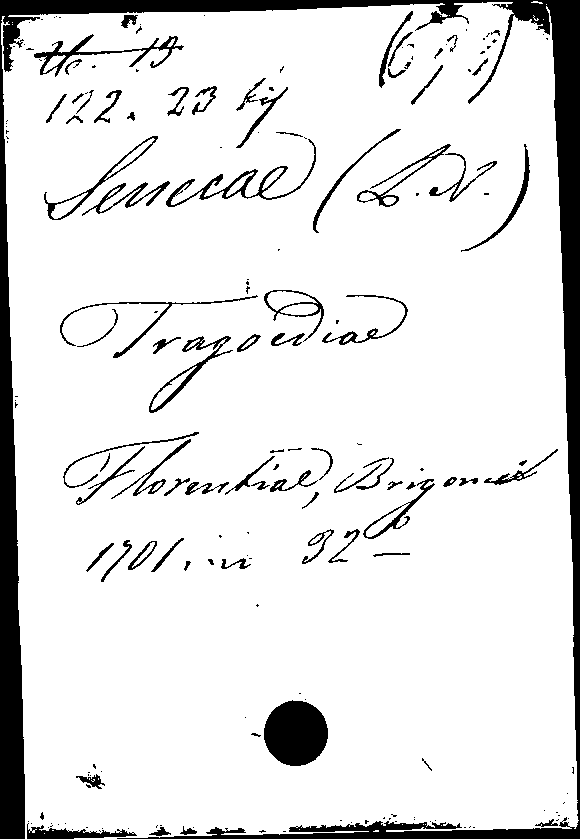 122. 23
Senecae (L. N.)
Tragoediae
Florentiae, Brigonci
1701. in 32º